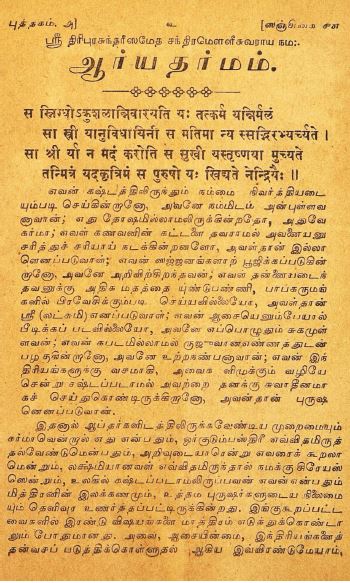 புத்தகம், அ] ௨ [ஸஞ்சிகை
ஸ்ரீ திரிபுரசுந்தரீஸமேத சந்திரமௌளீசுவராய நம:
ஆர்யதர்மம்.
स स्निग्धोऽकुशलान्निवारयति यः तत्कर्म यन्निर्मलं
सा स्त्री यानुविधायिनी स मतिमान्य स्सद्भिरभ्यर्च्यते ।
सा श्री र्या न मदं करोति स सुखी यस्तृष्णया मुच्यते
तन्मित्रं यदकृत्रिमं स पुरुषो यः खिद्यते नेन्द्रियैः ॥
எவன் கஷ்டத்திலிருந்தும் நம்மை நிவர்த்தியடை
யும்படி செய்கின்றானோ, அவனே நம்மிடம் அன்புள்ளவ
னாவான்; எது தோஷமில்லாமலிருக்கின்றதோ, அதுவே
கர்மா; எவள் கணவனின் கட்டளை தவறாமல் அவனையனு
சரித்துச் சரியாய் நடக்கின்றனளோ, அவள்தான் இல்லா
ளெனப்படுவாள்; எவன் ஸஜ்ஜனங்களாற் பூஜிக்கப்படுகின்
றானோ, அவனே அறிவிற்சிறந்தவன்; எவள் தன்னையடைந்
தவனுக்கு அதிக மதத்தை யுண்டுபண்ணி, பாபகருமங்
களில் பிரவேசிக்கும்படி செய்யவில்லையோ, அவள்தான்
ஸ்ரீ (லட்சுமி) எனப்படுவாள்; எவன் ஆசையெனும்பேயால்
பீடிக்கப் படவில்லையோ, அவனே எப்பொழுதும் சுகமுள்
ளவன்; எவன் கபடமில்லாமல் ருஜுவானஎண்ணத்துடன்
பழகுகின்றானோ, அவனே உற்றநண்பனாவான்; எவன் இந்
திரியங்களுக்கு வசமாகி, அவைக ளிழுக்கும் வழியே
சென்று கஷ்டப்படாமல் அவற்றை தனக்கு சுவாதீனமா
கச் செய்துகொண்டிருக்கின்றானோ, அவன்தான் புருஷ
னெனப்படுவான்.
இதனால் ஆப்தர்களிடத்திலிருக்கவேண்டிய முறைமையும்
கர்மாவென்றால் எது என்பதும், ஓர்குடும்பஸ்திரீ எவ்விதமிருத்
தல்வேண்டுமென்பதும், அறிவுடையாரென்று எவரைக் கூறலா
மென்றும், லக்ஷ்மியானவள் எவ்விதமிருந்தால் நமக்கு சிரேயஸ்
ஸென்றும், உலகில் கஷ்டப்படாமலிருப்பவன் எவன்என்பதும்
மித்திரனின் இலக்கணமும், உத்தம புருஷர்களுடைய நிலைமை
யும் தெளிவுர உணர்த்தப்பட்டிருக்கின்றது. இங்குகூறப்பட்ட
வைகளில் இரண்டு விஷயங்களை மாத்திரம் எடுத்துக்கொண்டா
லும் போதுமானது. அவை, ஆசையின்மை, இந்திரியங்களைத்
தன்வசப் படுத்திக்கொள்ளுதல் ஆகிய இவ்விரண்டுமேயாம்,